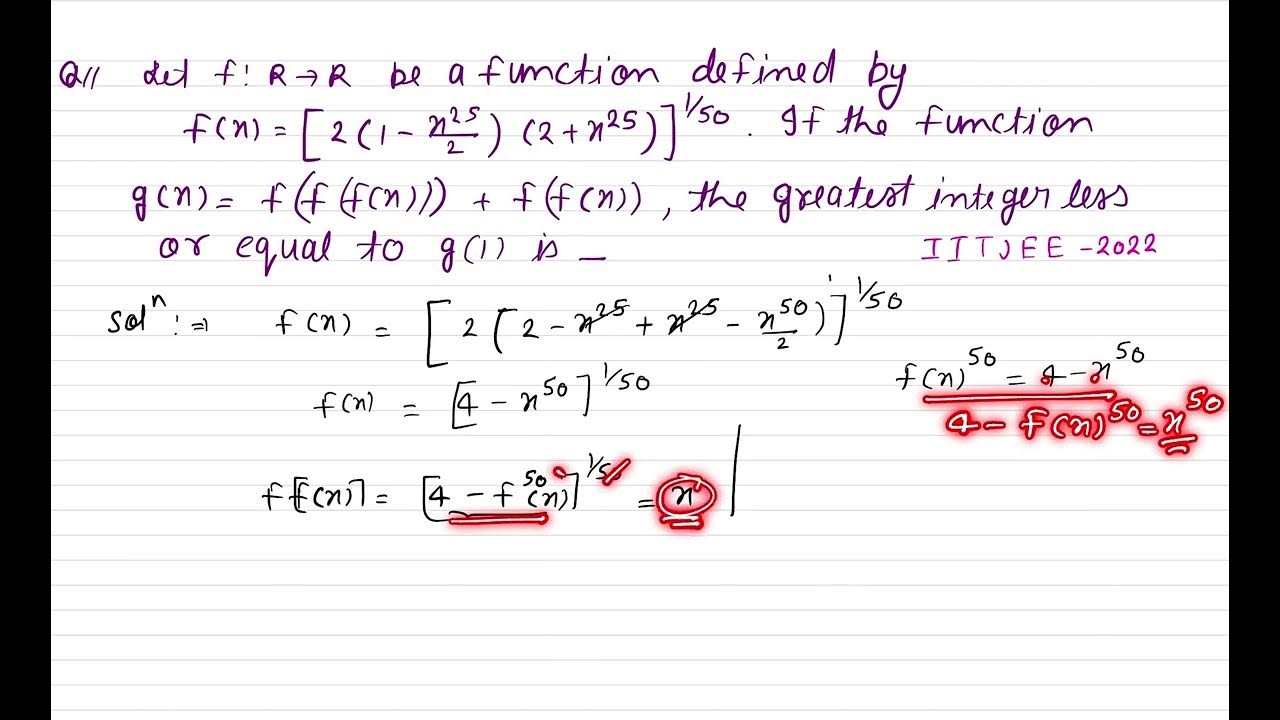 Q// Let f: R → R be a function defined by
f(x) = [2(1 - x^25/2) (2 + x^25)]^1/50 . If the function
g(x) = f(f(f(x))) + f(f(x)), the greatest integer less
or equal to g(1) is _
IITJEE -2022
Sol^n : ⇒ f(x) = [2(2 - x^25 + x^25 - x^50/2)]^1/50
f(x) = [4 - x^50]^1/50
f(x)^50 = 4 - x^50
4 - f(x)^50 = x^50
f[f(x)] = [4 - f^50(x)]^1/50 = x